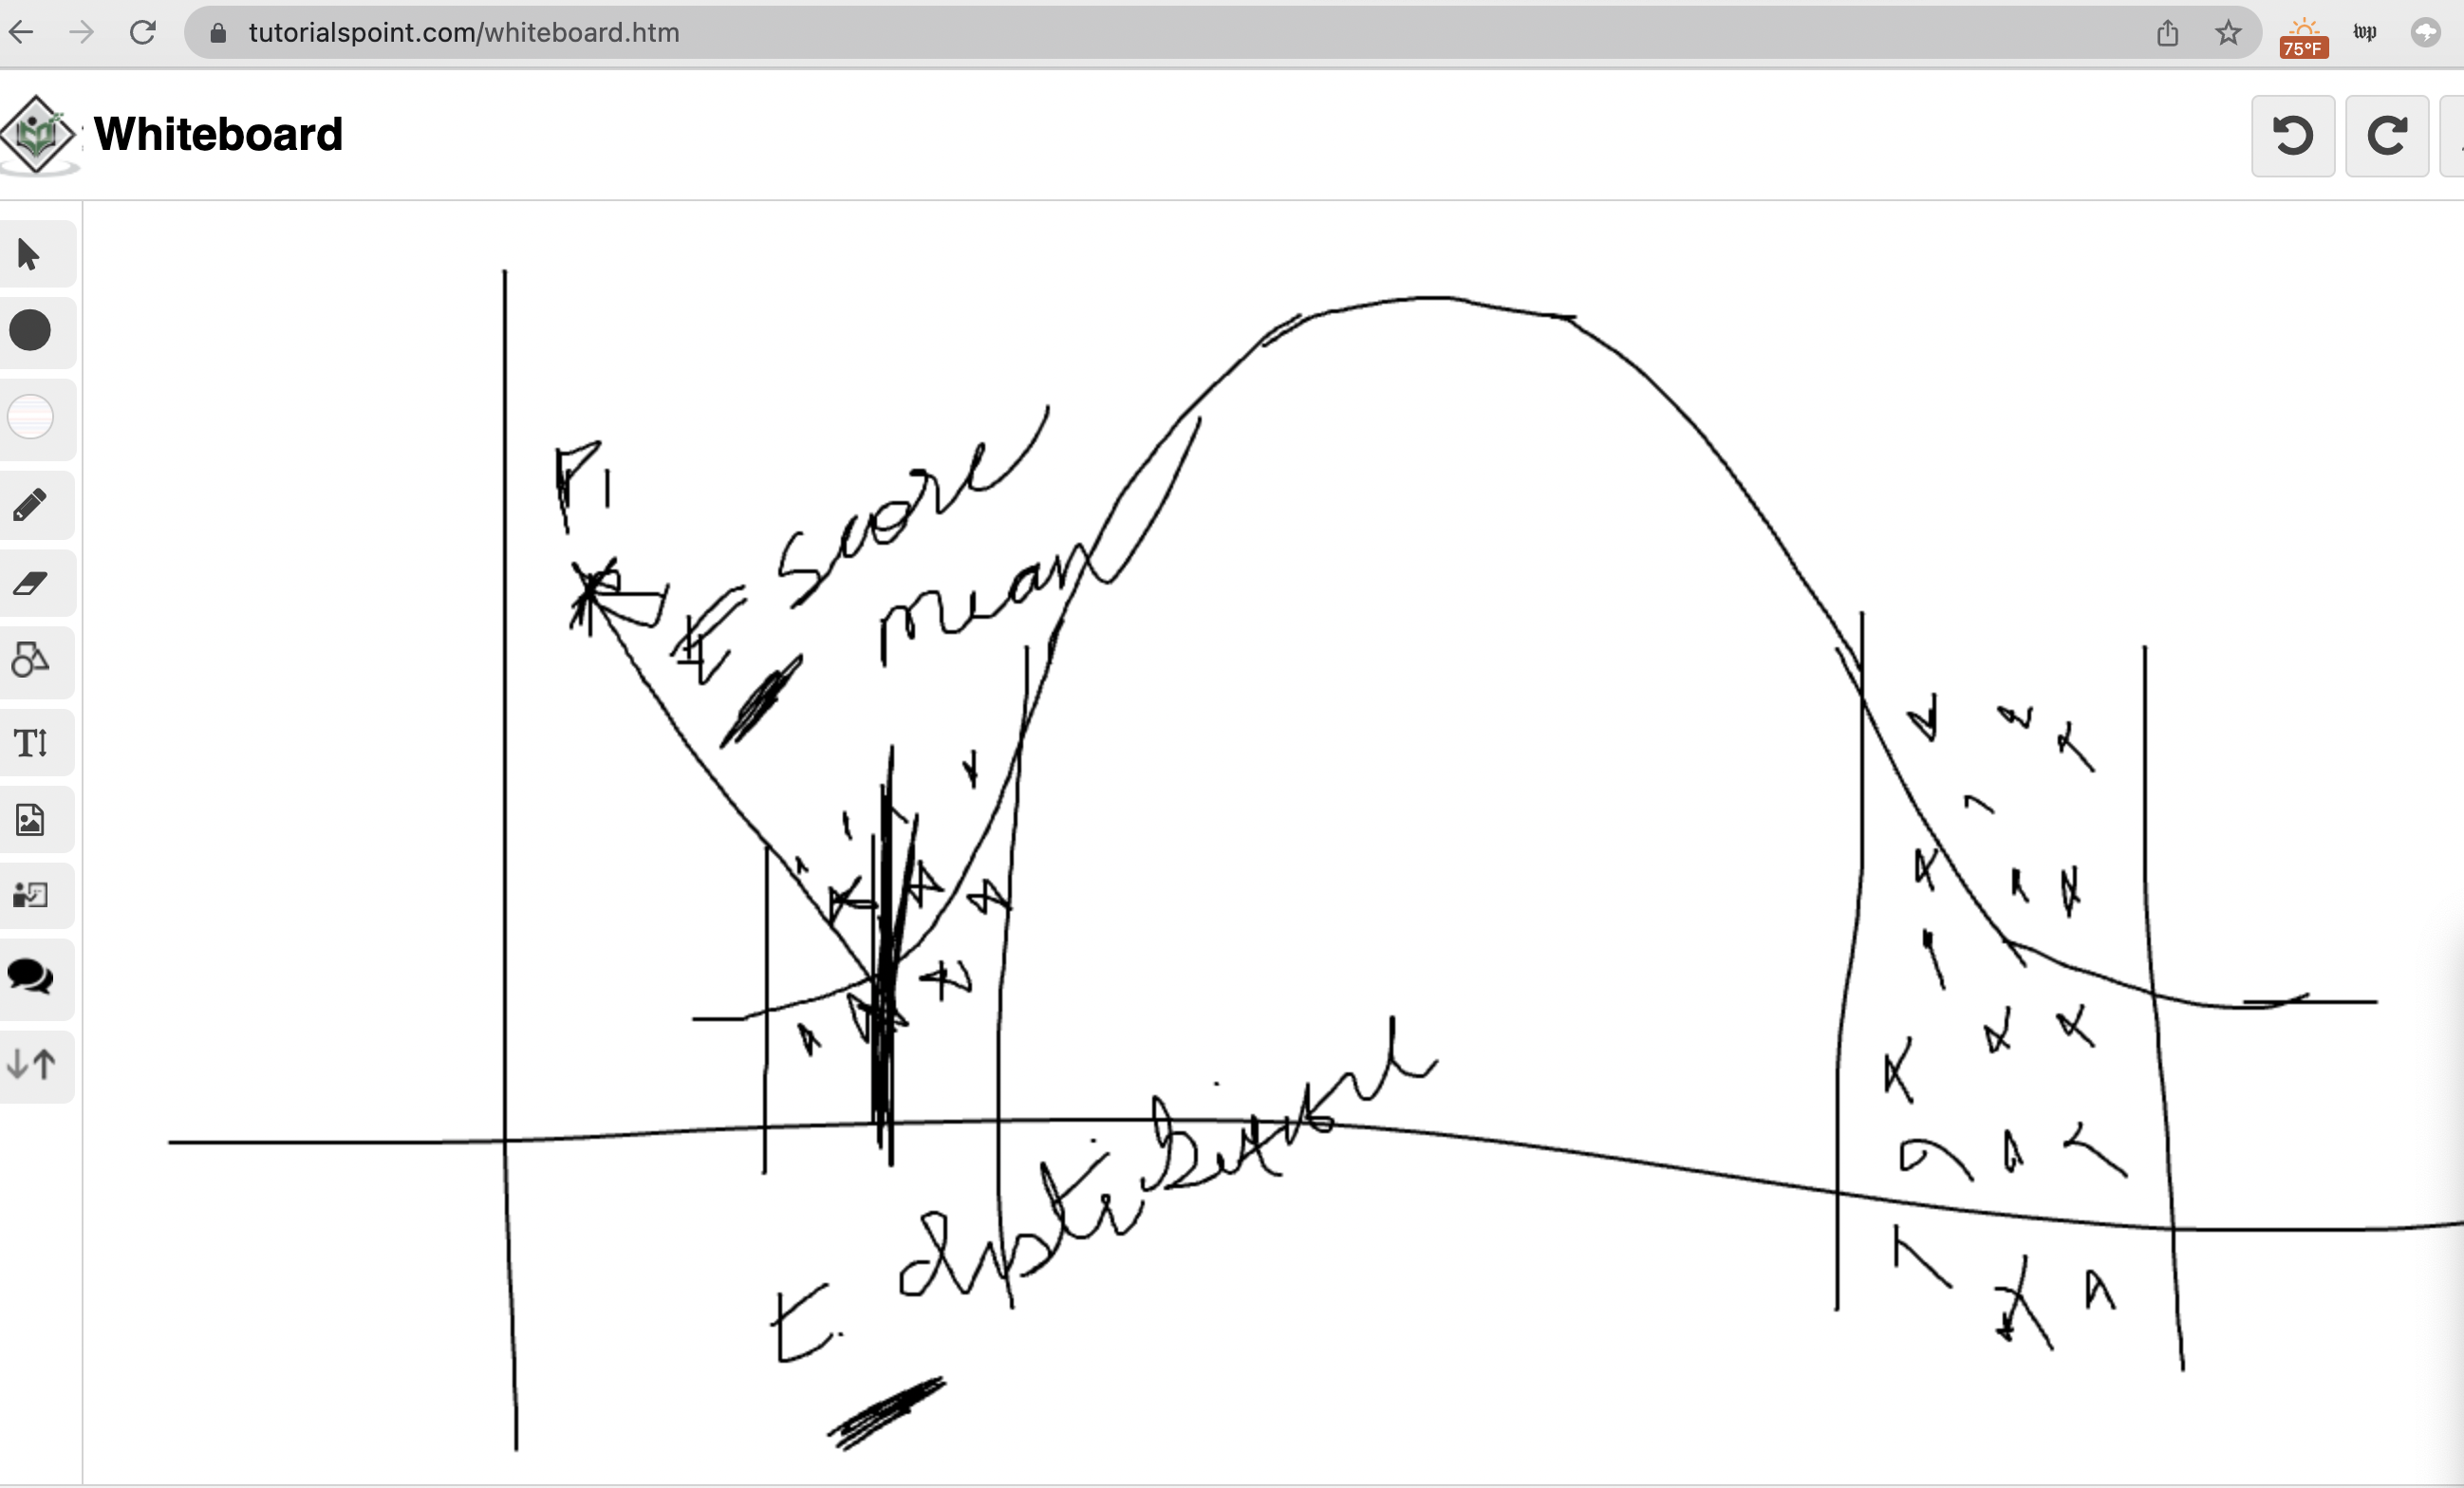 tutorialspoint.com/whiteboard.htm
75°F
wp
Whiteboard
T
P1
t score
mean
t. distribution